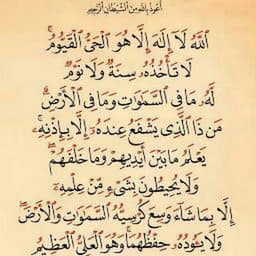 أعوذ بالله من الشيطان الرجيم
ٱللَّهُ لَآ إِلَٰهَ إِلَّا هُوَ ٱلْحَىُّ ٱلْقَيُّومُ ۚ
لَا تَأْخُذُهُۥ سِنَةٌ وَلَا نَوْمٌ ۚ
لَّهُۥ مَا فِى ٱلسَّمَٰوَٰتِ وَمَا فِى ٱلْأَرْضِ ۗ
مَن ذَا ٱلَّذِى يَشْفَعُ عِندَهُۥٓ إِلَّا بِإِذْنِهِۦ ۚ
يَعْلَمُ مَا بَيْنَ أَيْدِيهِمْ وَمَا خَلْفَهُمْ ۖ
وَلَا يُحِيطُونَ بِشَىْءٍ مِّنْ عِلْمِهِۦٓ
إِلَّا بِمَا شَآءَ ۚ وَسِعَ كُرْسِيُّهُ ٱلسَّمَٰوَٰتِ وَٱلْأَرْضَ ۖ
وَلَا يَـُٔودُهُۥ حِفْظُهُمَا ۚ وَهُوَ ٱلْعَلِىُّ ٱلْعَظِيمُ